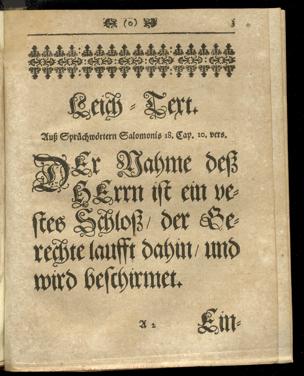 (0) 3
Leich-Text.
Auß Sprüchwörtern Salomonis 18. Cap. 10. vers.
DEr Nahme deß
HErrn ist ein ve-
stes Schloß/ der Ge-
rechte laufft dahin/ und
wird beschirmet.
A 2 Ein-